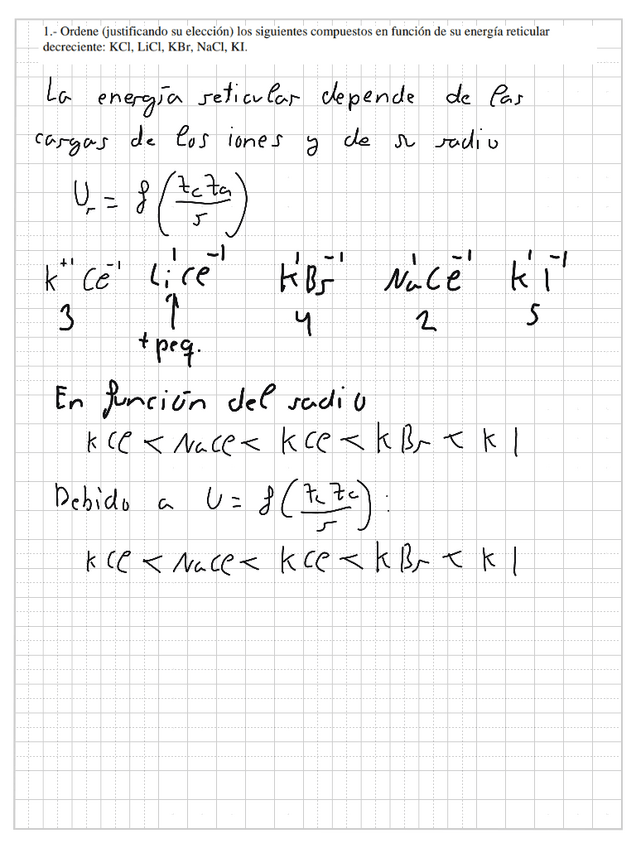 1.- Ordene (justificando su elección) los siguientes compuestos en función de su energía reticular
decreciente: KCl, LiCl, KBr, NaCl, KI.
La energía reticular depende de las
cargas de los iones y de su radio
Ur = f(zc za / r)
K⁺¹ Cl⁻¹ Li¹Cl⁻¹ K¹Br⁻¹ Na¹Cl⁻¹ K¹I⁻¹
3 ↑ 4 2 5
+ peq.
En función del radio
KCl < NaCl < KCl < KBr < KI
Debido a U = f(zc zc / r) :
KCl < NaCl < KCl < KBr < KI